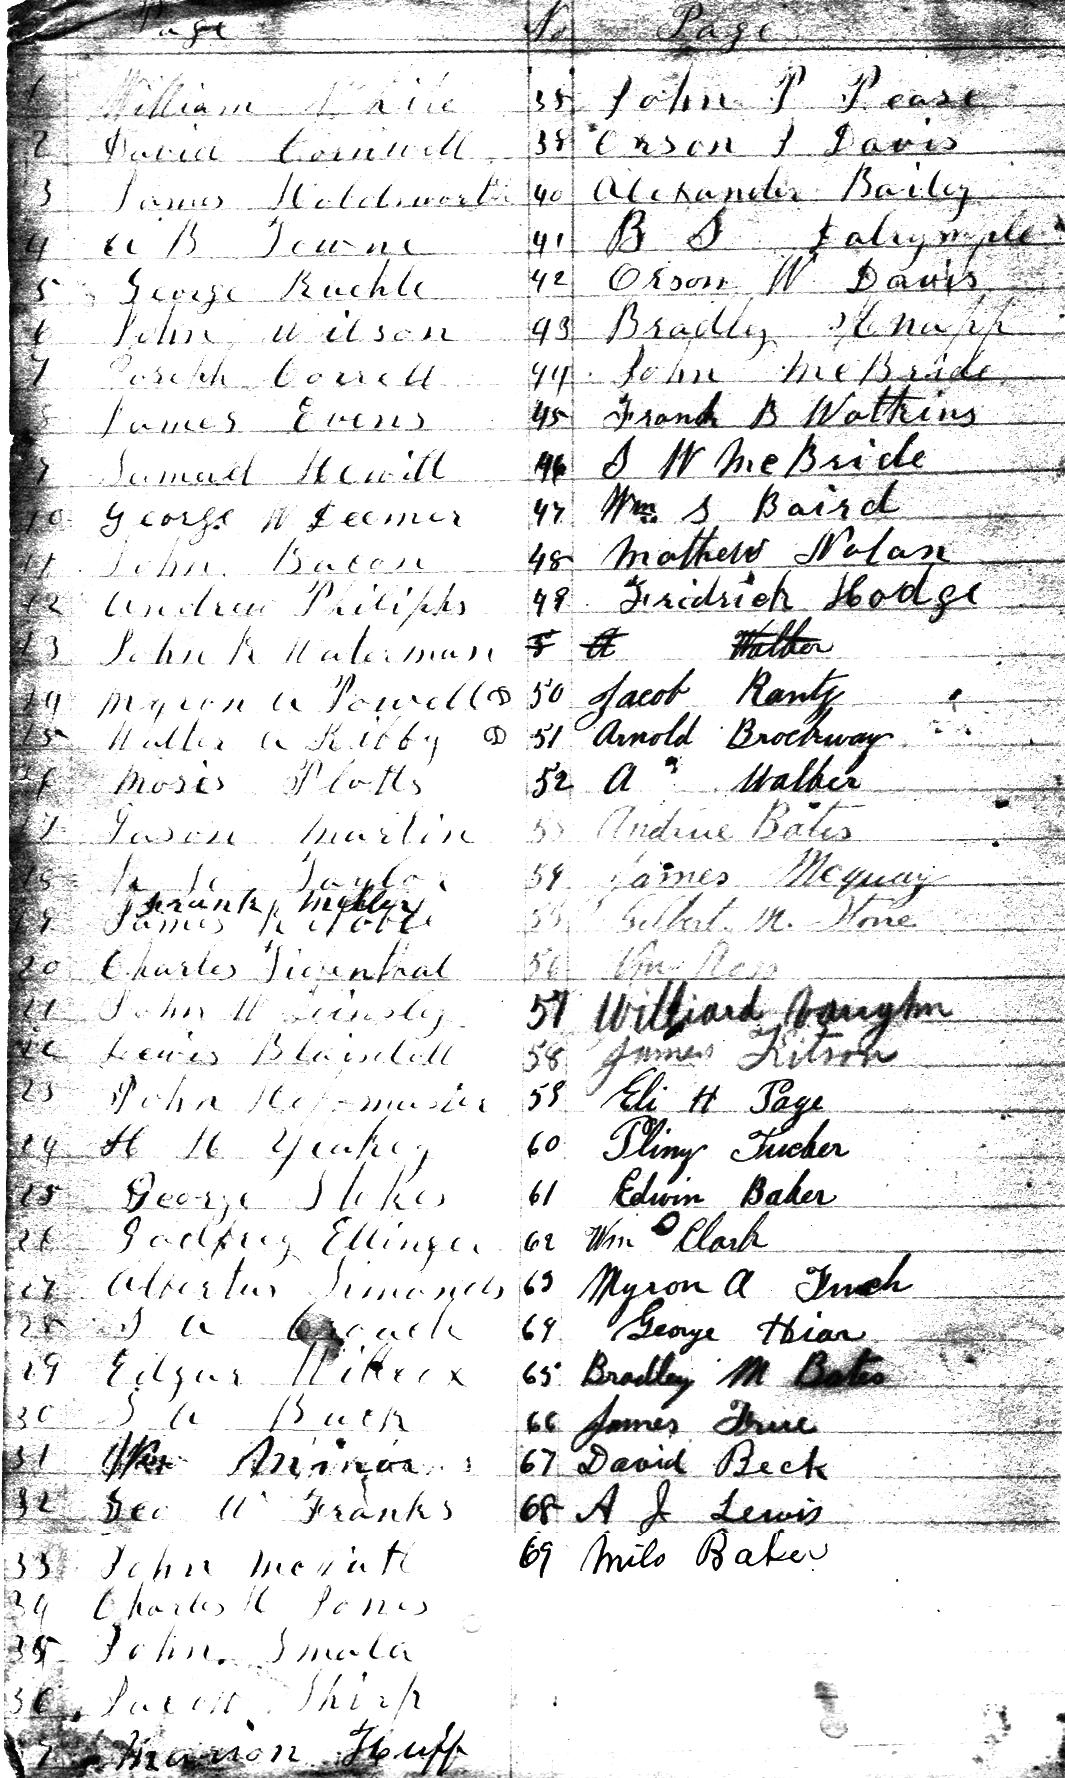 Page
1 William White
2 David Cornwell
3 James Holdsworth
4 A B Towne
5 George Kuehle
6 John Wilson
7 Joseph Correll
8 James Evens
9 Samuel Hewitt
10 George W Deemer
11 John Bacon
12 Andrew Philipps
13 John R Waterman
14 Myron A Powell D
15 Walter A Kibby D
16 Moses Plotts
17 Jason Martin
18 Taylor
Frank Miller
19 James
20 Charles Tigenthal
21 John W
22 Lewis Blaisdell
23 John
24 H H Yeakey
25 George Stokes
26 Godfrey Ellinger
27 Albertus Simonds
28 S A Crouch
29 Edgar Willcox
30 S A Buck
31
32 Geo W Franks
33 John
34 Charles H Jones
35 John Smala
36 Jacob Shirp
37 Marion Huff
No Page
38 John P Pease
39 Orson S Davis
40 Alexander Bailey
41 B S Dalrymple
42 Orson W Davis
43 Bradley Knapp
44 John McBride
45 Frank B Watkins
46 S W McBride
47 Wm S Baird
48 Mathew Nolan
49 Fridrick Hodge
5 A Walker
50 Jacob Rantz
51 Arnold Brockway
52 A Walker
53 Andrue Bates
54 James Mcquay
55 Gilbert M. Stone
56 Wm Ross
57 Williard Vaughn
58 James Kitson
59 Eli H Page
60 Pliny Tucker
61 Edwin Baker
62 Wm Clark
63 Myron A Finch
64 George Hiar
65 Bradley M Bates
66 James True
67 David Beck
68 A J Lewis
69 Milo Baker